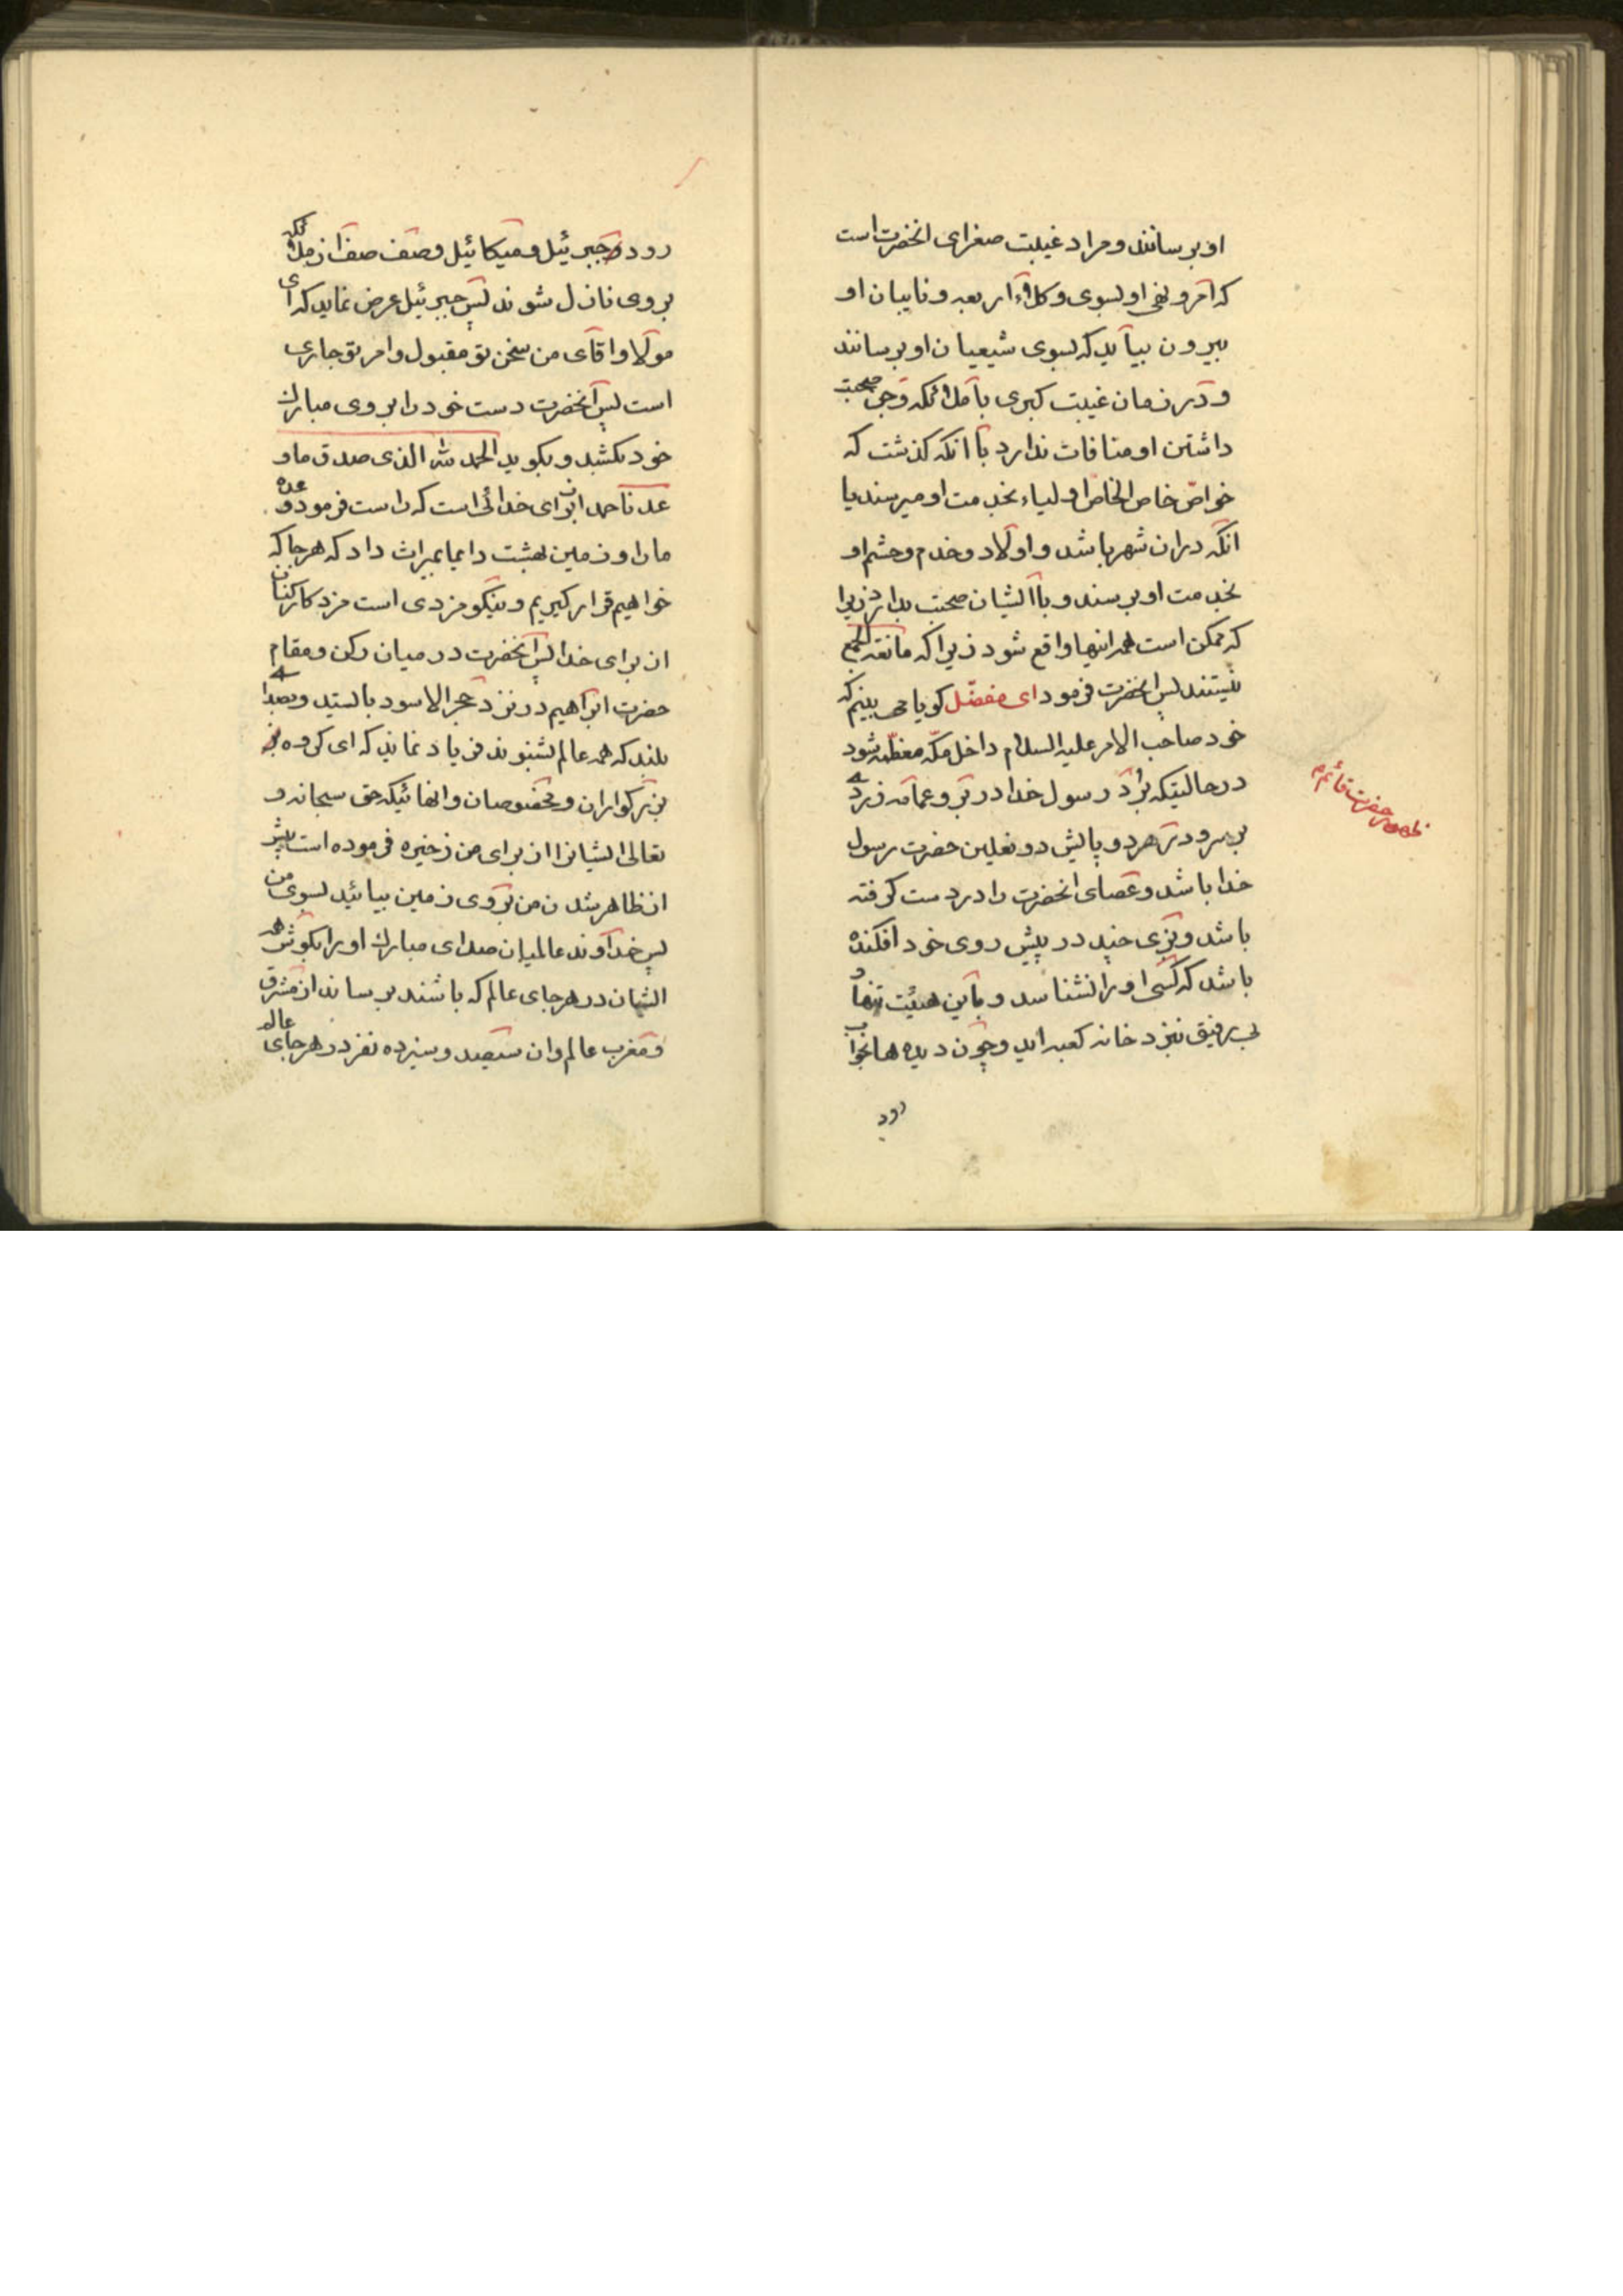 او برسانند و مراد غیبت صغرای انحضرت است
که امر و نهی او بسوی وکلاء اربعه و نایبان او
بیرون بیاید که بسوی شیعیان او برسانند
و در زمان غیبت کبری با ملائکه و جن صحبت
داشتن او منافات ندارد با انکه کذشت که
خواص خاص الخاص اولیاء بخدمت او میرسند یا
انکه دران شهر باشد و اولاد و خدم و حشم او
بخدمت او برسند و با ایشان صحبت بدارد زیرا
که ممکن است همه اینها واقع شود زیرا که مانعة الجمع
نیستند پس انحضرت فرمود ای مفضّل کویا می بینم که
خود صاحب الامر علیه السلام داخل مکّه معظّمه شود
درحالتیکه برد رسول خدا در بر و عمامه زرد
بر سر و در هر دو پایش دو نعلین حضرت رسول
خدا باشد و عصای انحضرت را در دست کرفته
باشد و بزی چند در پیش روی خود افکنده
باشد که کسی او را نشناسد و باین هیئت تنها و
بی رفیق بنزد خانه کعبه اید و چون دیده ها بخواب
رود
ظهور حضرت قائم ع
رود جبرئیل و میکائیل و صف صف از ملائکه
بر وی نازل شوند پس جبرئیل عرض نماید که ای
مولا و اقای من سخن تو مقبول و امر تو جاری
است پس انحضرت دست خود را بر روی مبارک
خود بکشد و بکوید الحمد لله الذی صدق ما و
عدنا حمد از برای خدائی است که راست فرمود وعده
ما را و زمین بهشت را بما بمیراث داد که هر جا که
خواهیم قرار کیریم و نیکو مزدی است مزد کارکنان
از برای خدا پس انحضرت در میان رکن و مقام
حضرت ابراهیم در نزد حجر الاسود بایستد و بصدای
بلند که همه عالم بشنوند فریاد نماید که ای کروه
بزرکواران و مخصوصان و انهائیکه حق سبحانه و
تعالی ایشانرا از برای من زخیره فرموده است پیش
از ظاهر شدن من بر روی زمین بیائید بسوی من
پس خداوند عالمیان صدای مبارک او را بکوش همه
ایشان در هر جای عالم که باشند برساند از مشرق
و مغرب عالم و ان سیصد و سیزده نفر در هر جای عالم